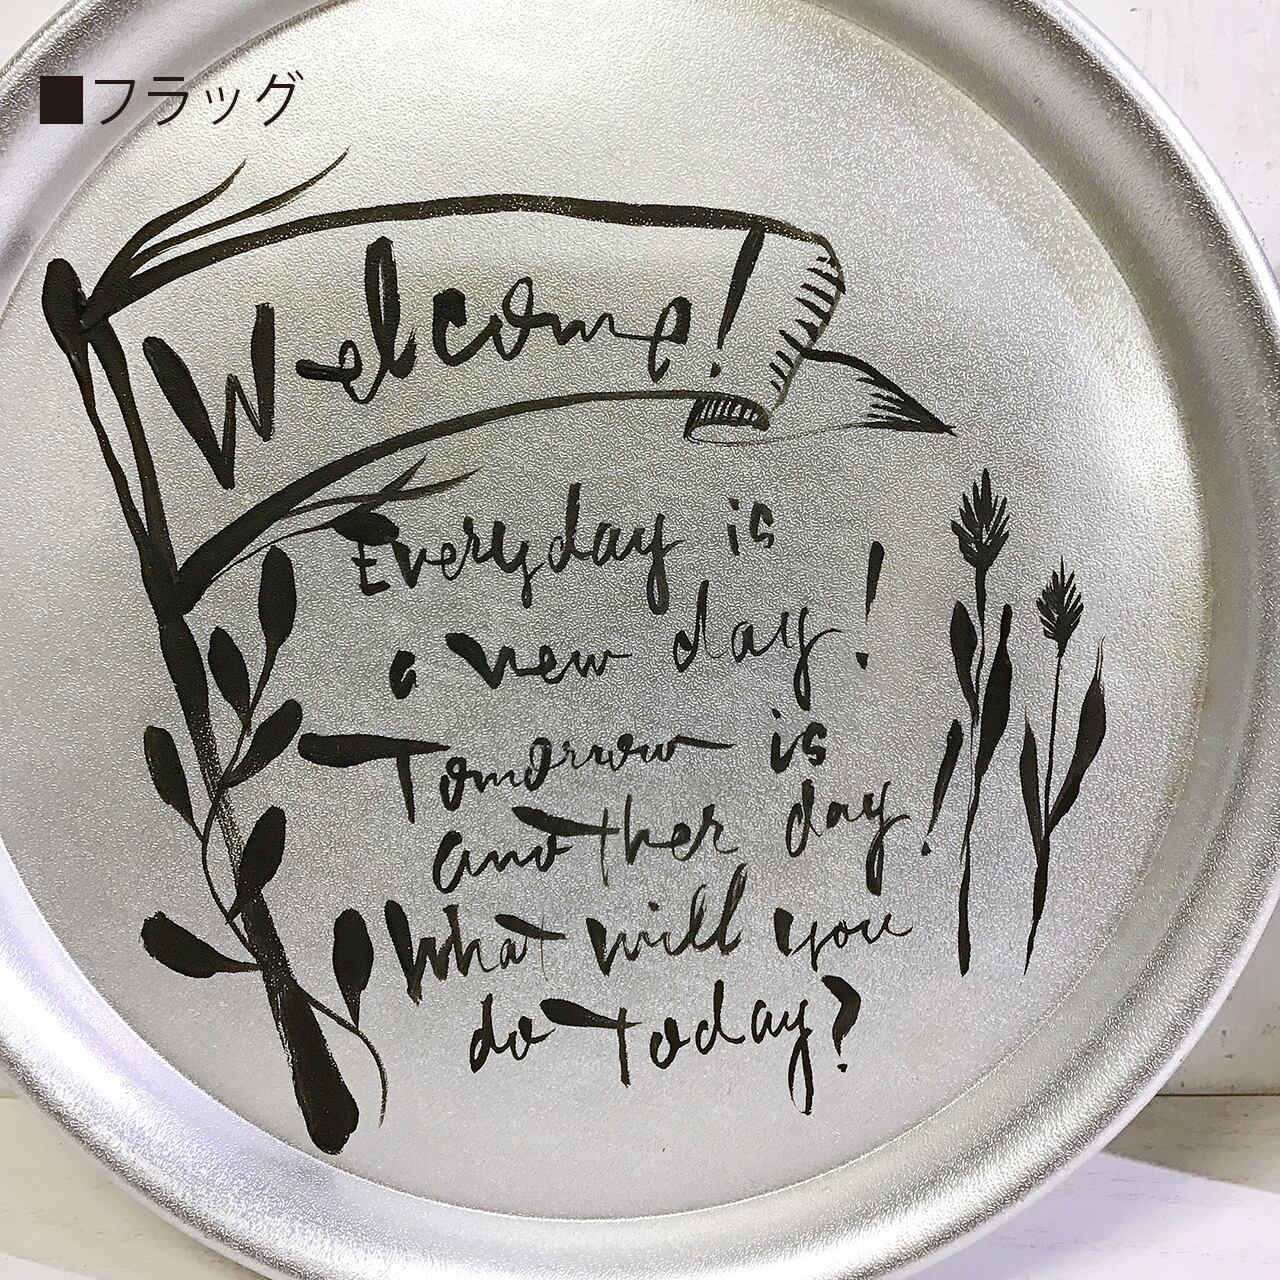 ■フラッグ
Welcome!
Everyday is
a new day!
Tomorrow is
another day!
What will you
do today?